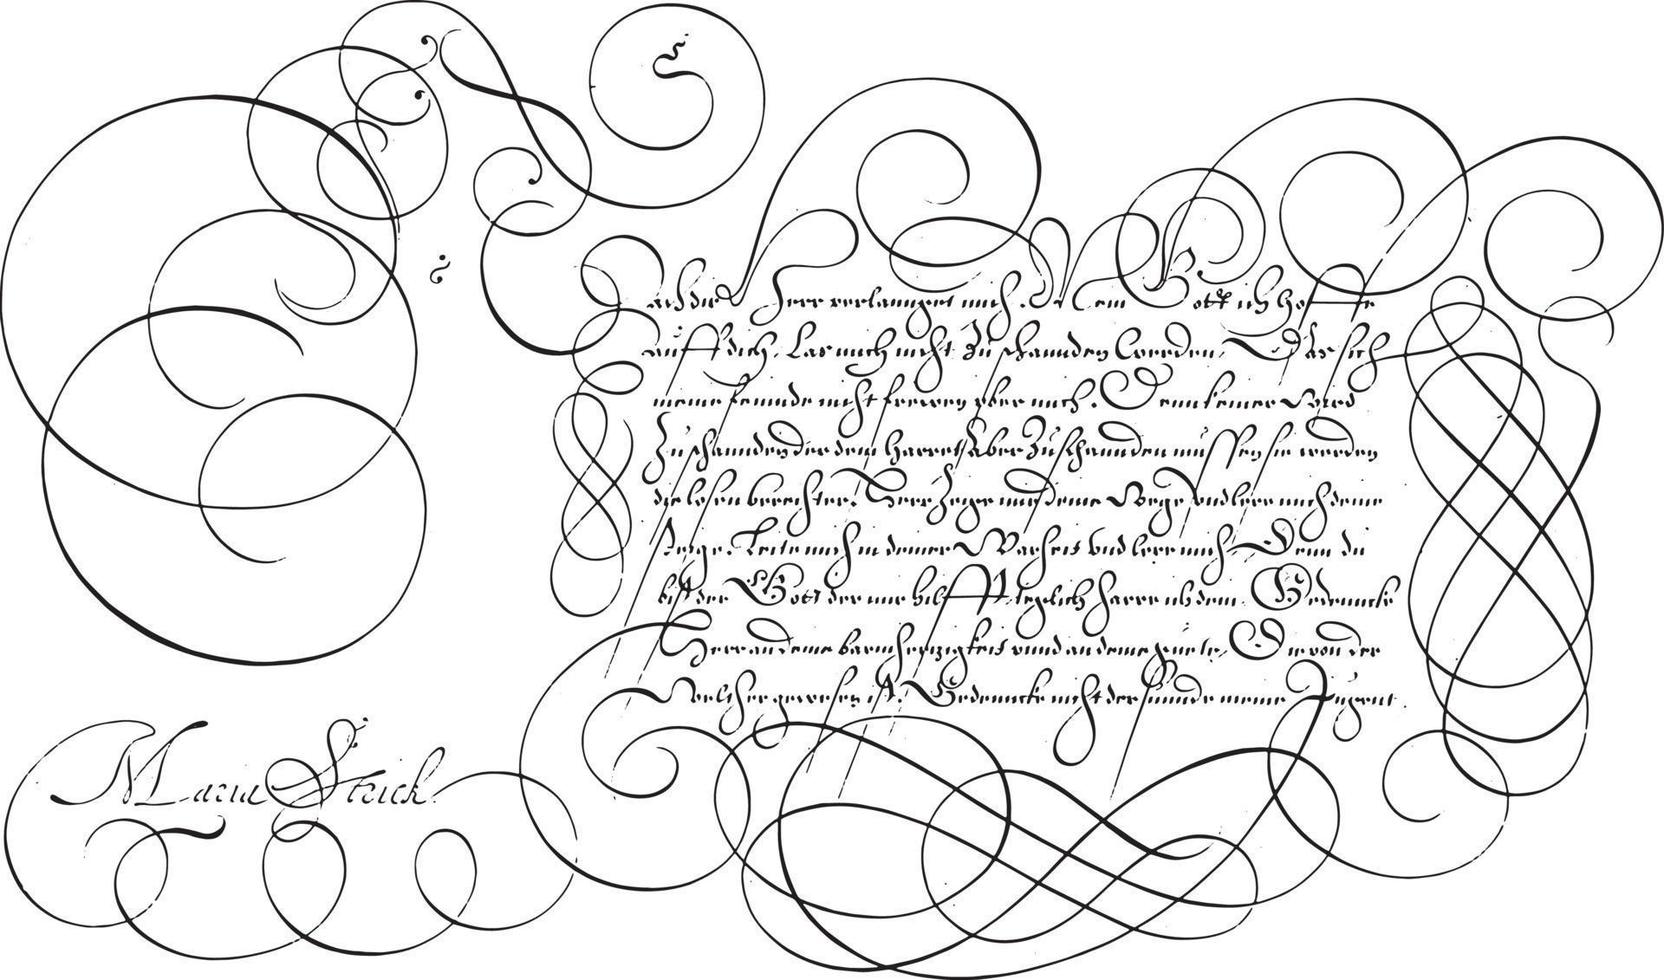 Nach dir Herr verlannget mich. Mein Gott ich hoffe
auff dich, Las mich nicht zu schannden werden, Das sich
meine feinnde nicht frewen vber mich. Denn keiner wird
Zu schannden der dein harret, Aber Zu schannden müssen sie werden
die losen verechter. Herr Zeige mir deine Wege vnd lere mich deine
steige. Leite mich in deiner Warheit vnd lere mich, Denn du
bist der Gott der mir hilfft, teglich harre ich dein. Gedenncke
Herr an deine barmhertzigkeit vnnd an deine güete, Die von der
Welt her gewesen ist. Gedenncke nicht der sünde meiner Jugent.
Maria Strick.